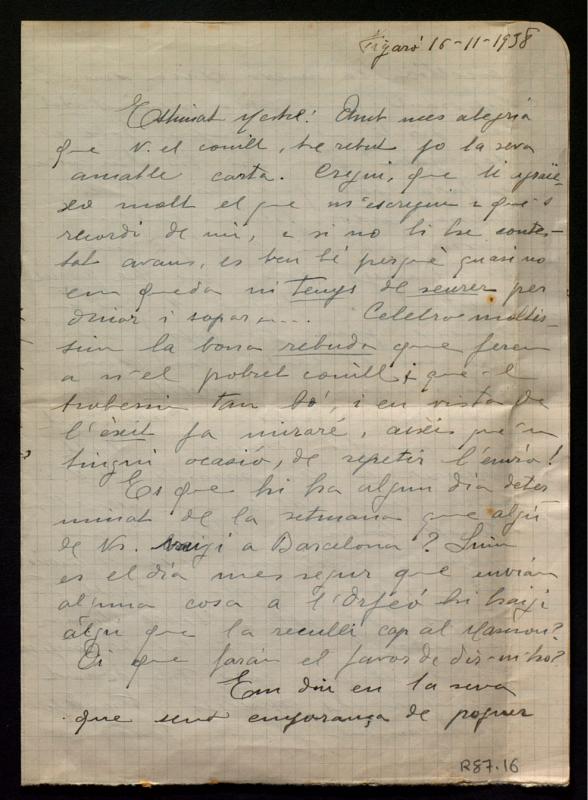 Figaró 16-11-1938
Estimat Mestre! Amb mes alegria
que V. el conill, he rebut jo la seva
amable carta. Cregui, que li agraei-
xo molt el que m'escrigui i que's
recordi de mi, i si no li he contes-
tat avans, es ben bé perquè quasi no
em queda ni temps de seurer per
dinar i sopar.... Celebro moltis-
sim la bona rebuda que feren
a n'el pobret conill i que el
trobessin tan bo, i en vista de
l'èxit ja miraré, aixís que'n
tingui ocasió, de repetir l'envio!
Es que hi ha algun dia deter
minat de la setmana que algú
de Vs. vaigi a Barcelona?
es el dia mes segur que enviàn
alguna cosa a l'Orfeó hi haigi
algú que la reculli cap al
Oi que faràn el favor de dir-m'ho?
Em diu en la seva
que sent enyorança de poguer
R87.16